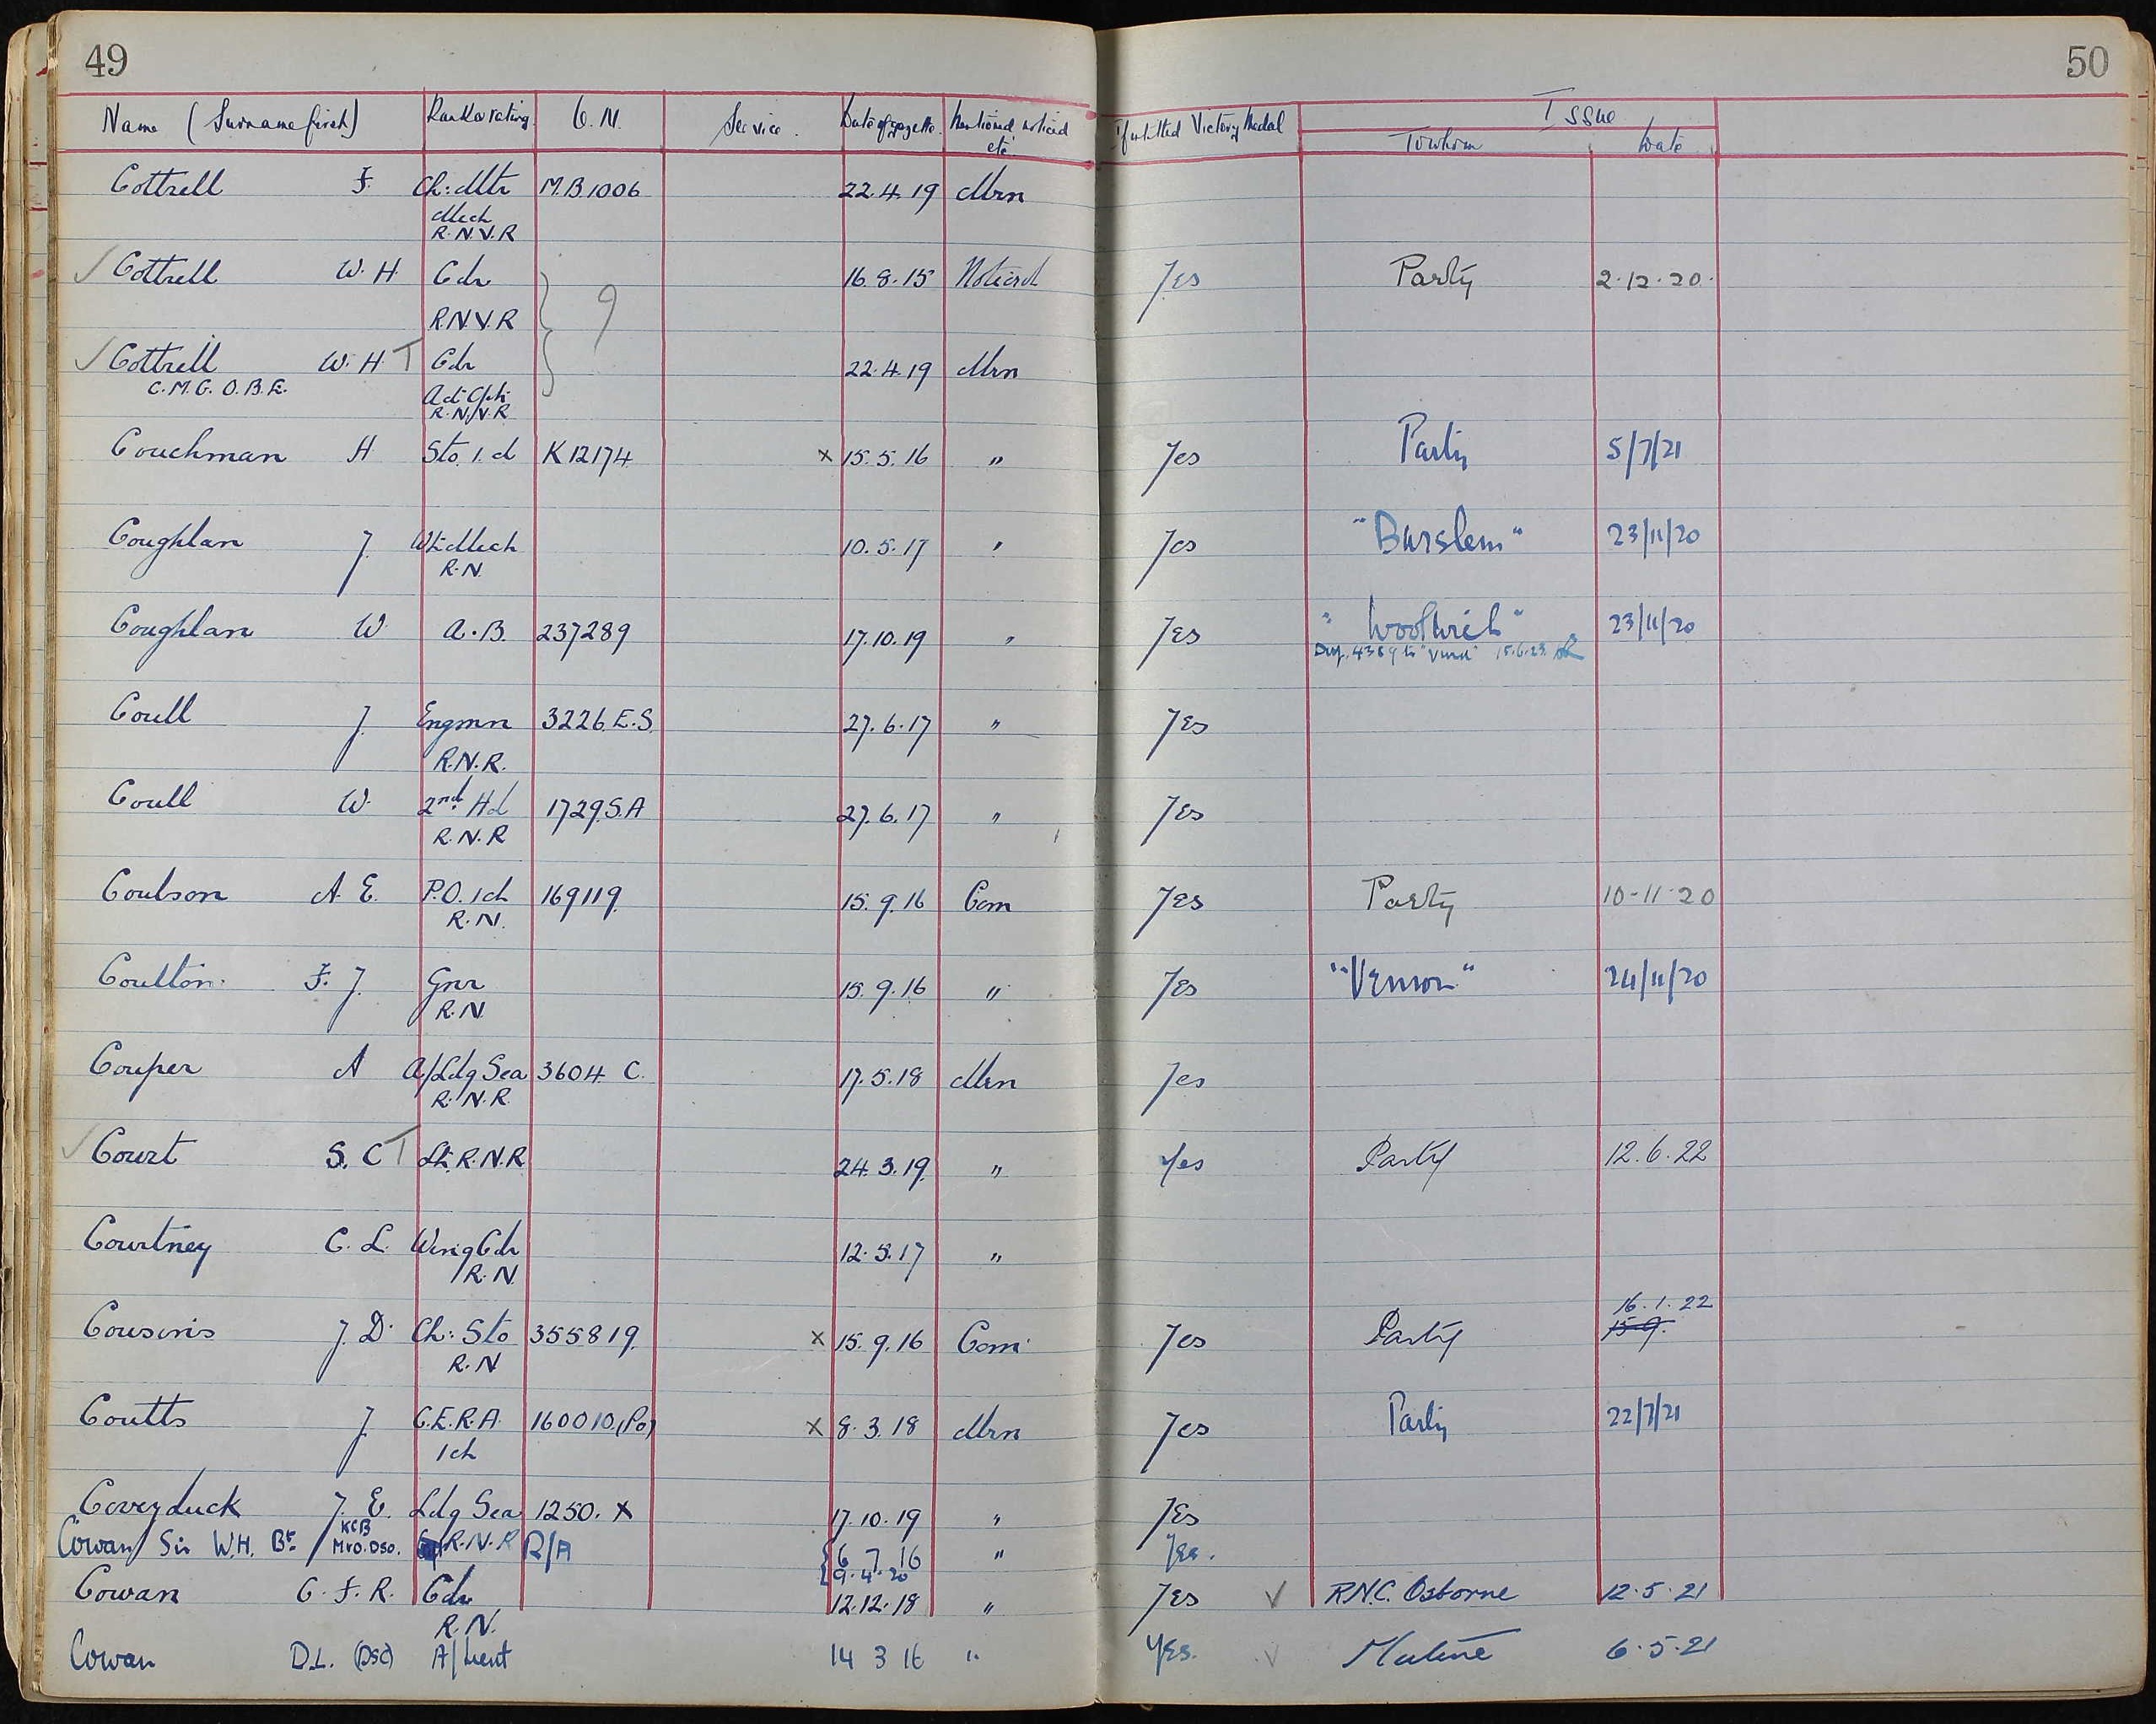 49
50
Name (Surname first) Rank or rating O.N. Service. Date of gazette. Mentioned, noticed etc. If entitled Victory Medal Issue
To whom Date
Cottrell F. Ch: Mtr M.B.1006 22.4.19 Mrn
Mech
R.N.V.R
Cottrell W. H. Cdr 16.8.15 Noticed Yes Party 2.12.20.
R.N.V.R ?
Cottrell W. H T Cdr 22.4.19 Mrn
C.M.G. O.B.E. Act Capt.
R.N.V.R
Couchman H Sto. 1. cl K 12174 x 15.5.16 " Yes Party 5/7/21
Coughlan J. Wt Mech 10.5.17 " Yes "Burslem" 23/11/20
R.N.
Coughlan W A.B. 237289 17.10.19 " Yes "Woolwich" 23/11/20
4389 to 15.6.23
Coull J. Engmn 3226.E.S. 27.6.17 " Yes
R.N.R.
Coull W. 2nd Hd 1729.S.A 27.6.17 " Yes
R.N.R
Coulson A. E. P.O. 1cl 169119. 15.9.16 Com Yes Party 10-11-20
R.N.
Coulton. F. J. Gnr 15.9.16 " Yes "Vernon" 24/11/20
R.N.
Couper A A/Ldg Sea 3604 C. 17.5.18 Mrn Yes
R.N.R.
Court S. C T Lt. R.N.R. 24.3.19. " Yes Party 12.6.22
Courtney C. L. Wing Cdr 12.5.17 "
R.N.
16.1.22
Cousins J. D. Ch: Sto 355819. x 15.9.16 Com. Yes Party 15.9.
R.N
Coutts J. C.E.R.A. 160010.(Po) x 8.3.18 Mrn Yes Party 22/7/21
1cl
Coveyduck J. E. Ldg Sea 1250. X 17.10.19 " Yes
KCB
Cowan Sir W.H. Bt. MVO. DSO. R.N.R R/A 6 7 16 " Yes.
9.4.20
Cowan C. F. R. Cdr 12.12.18 " Yes R.N.C. Osborne 12.5.21
R.N.
Cowan D.L. (DSC) A/Lieut 14 3 16 " Yes. Mutine 6.5.21